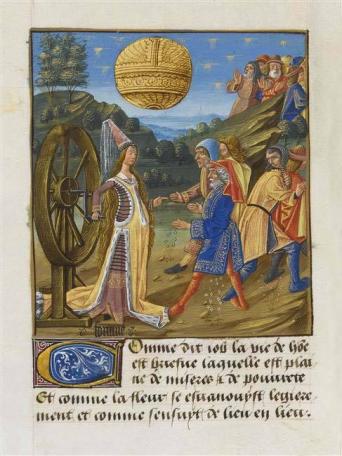 Comme dit iob la vie de hõe
est briefue laquelle est plai
ne de miseres & de pourete
Et comme la fleur se esuanouyst legiere
ment et comme sensuyt de lieu en lieu.